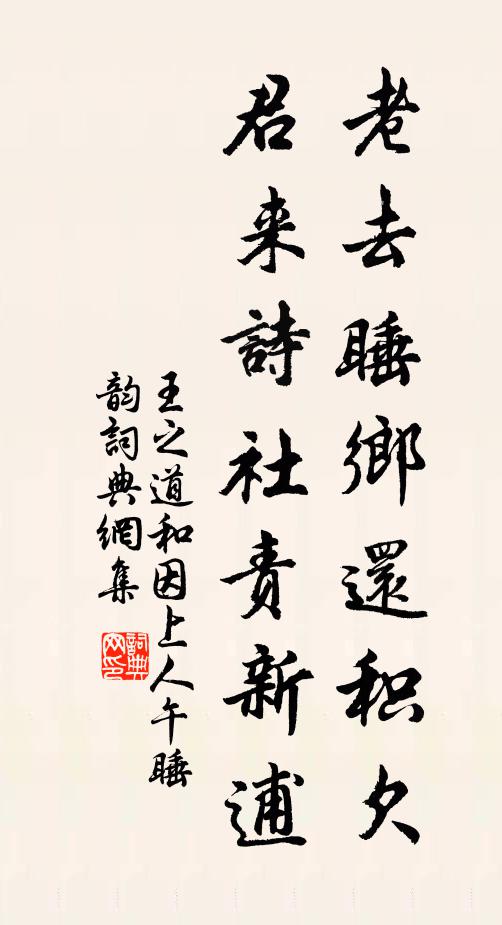 老去睡鄉還积欠
君来詩社責新逋
王之道和因上人午睡
韵詞典網集
詞典网印